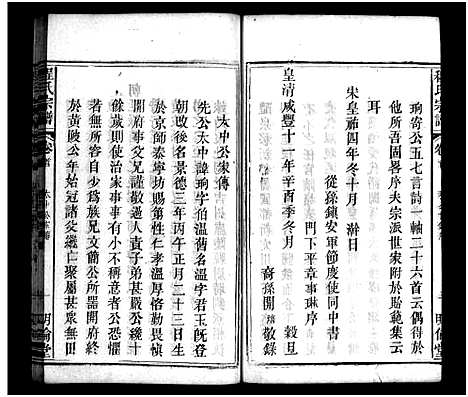 珦寄公五七言詩一軸二十六首云偶得於
他所吾固畧序夫宗派世家附於貽範集云
耳
宋皇祐四年冬十月　澣日
從孫鎮安軍節度使同中書
門下平章事琳序
皇清咸豐十一年辛酉季冬月　穀旦
裔孫開　敬錄
明倫堂
程氏宗譜　卷首
太中公家傳
先公太中諱珦字伯溫舊名溫字君玉既登
朝改後名景德三年丙午正月二十三日生
於京師泰寧坊賜第性仁孝溫厚恪勤
開府事父兄謹敬過人責子弟甚嚴公纔十
餘歲則使治家事事有小不稱意者公恐懼
若無所容少為族兄文簡公所器開府終
於黃陂公年始冠諸父繼亡聚屬甚衆無田
明倫堂